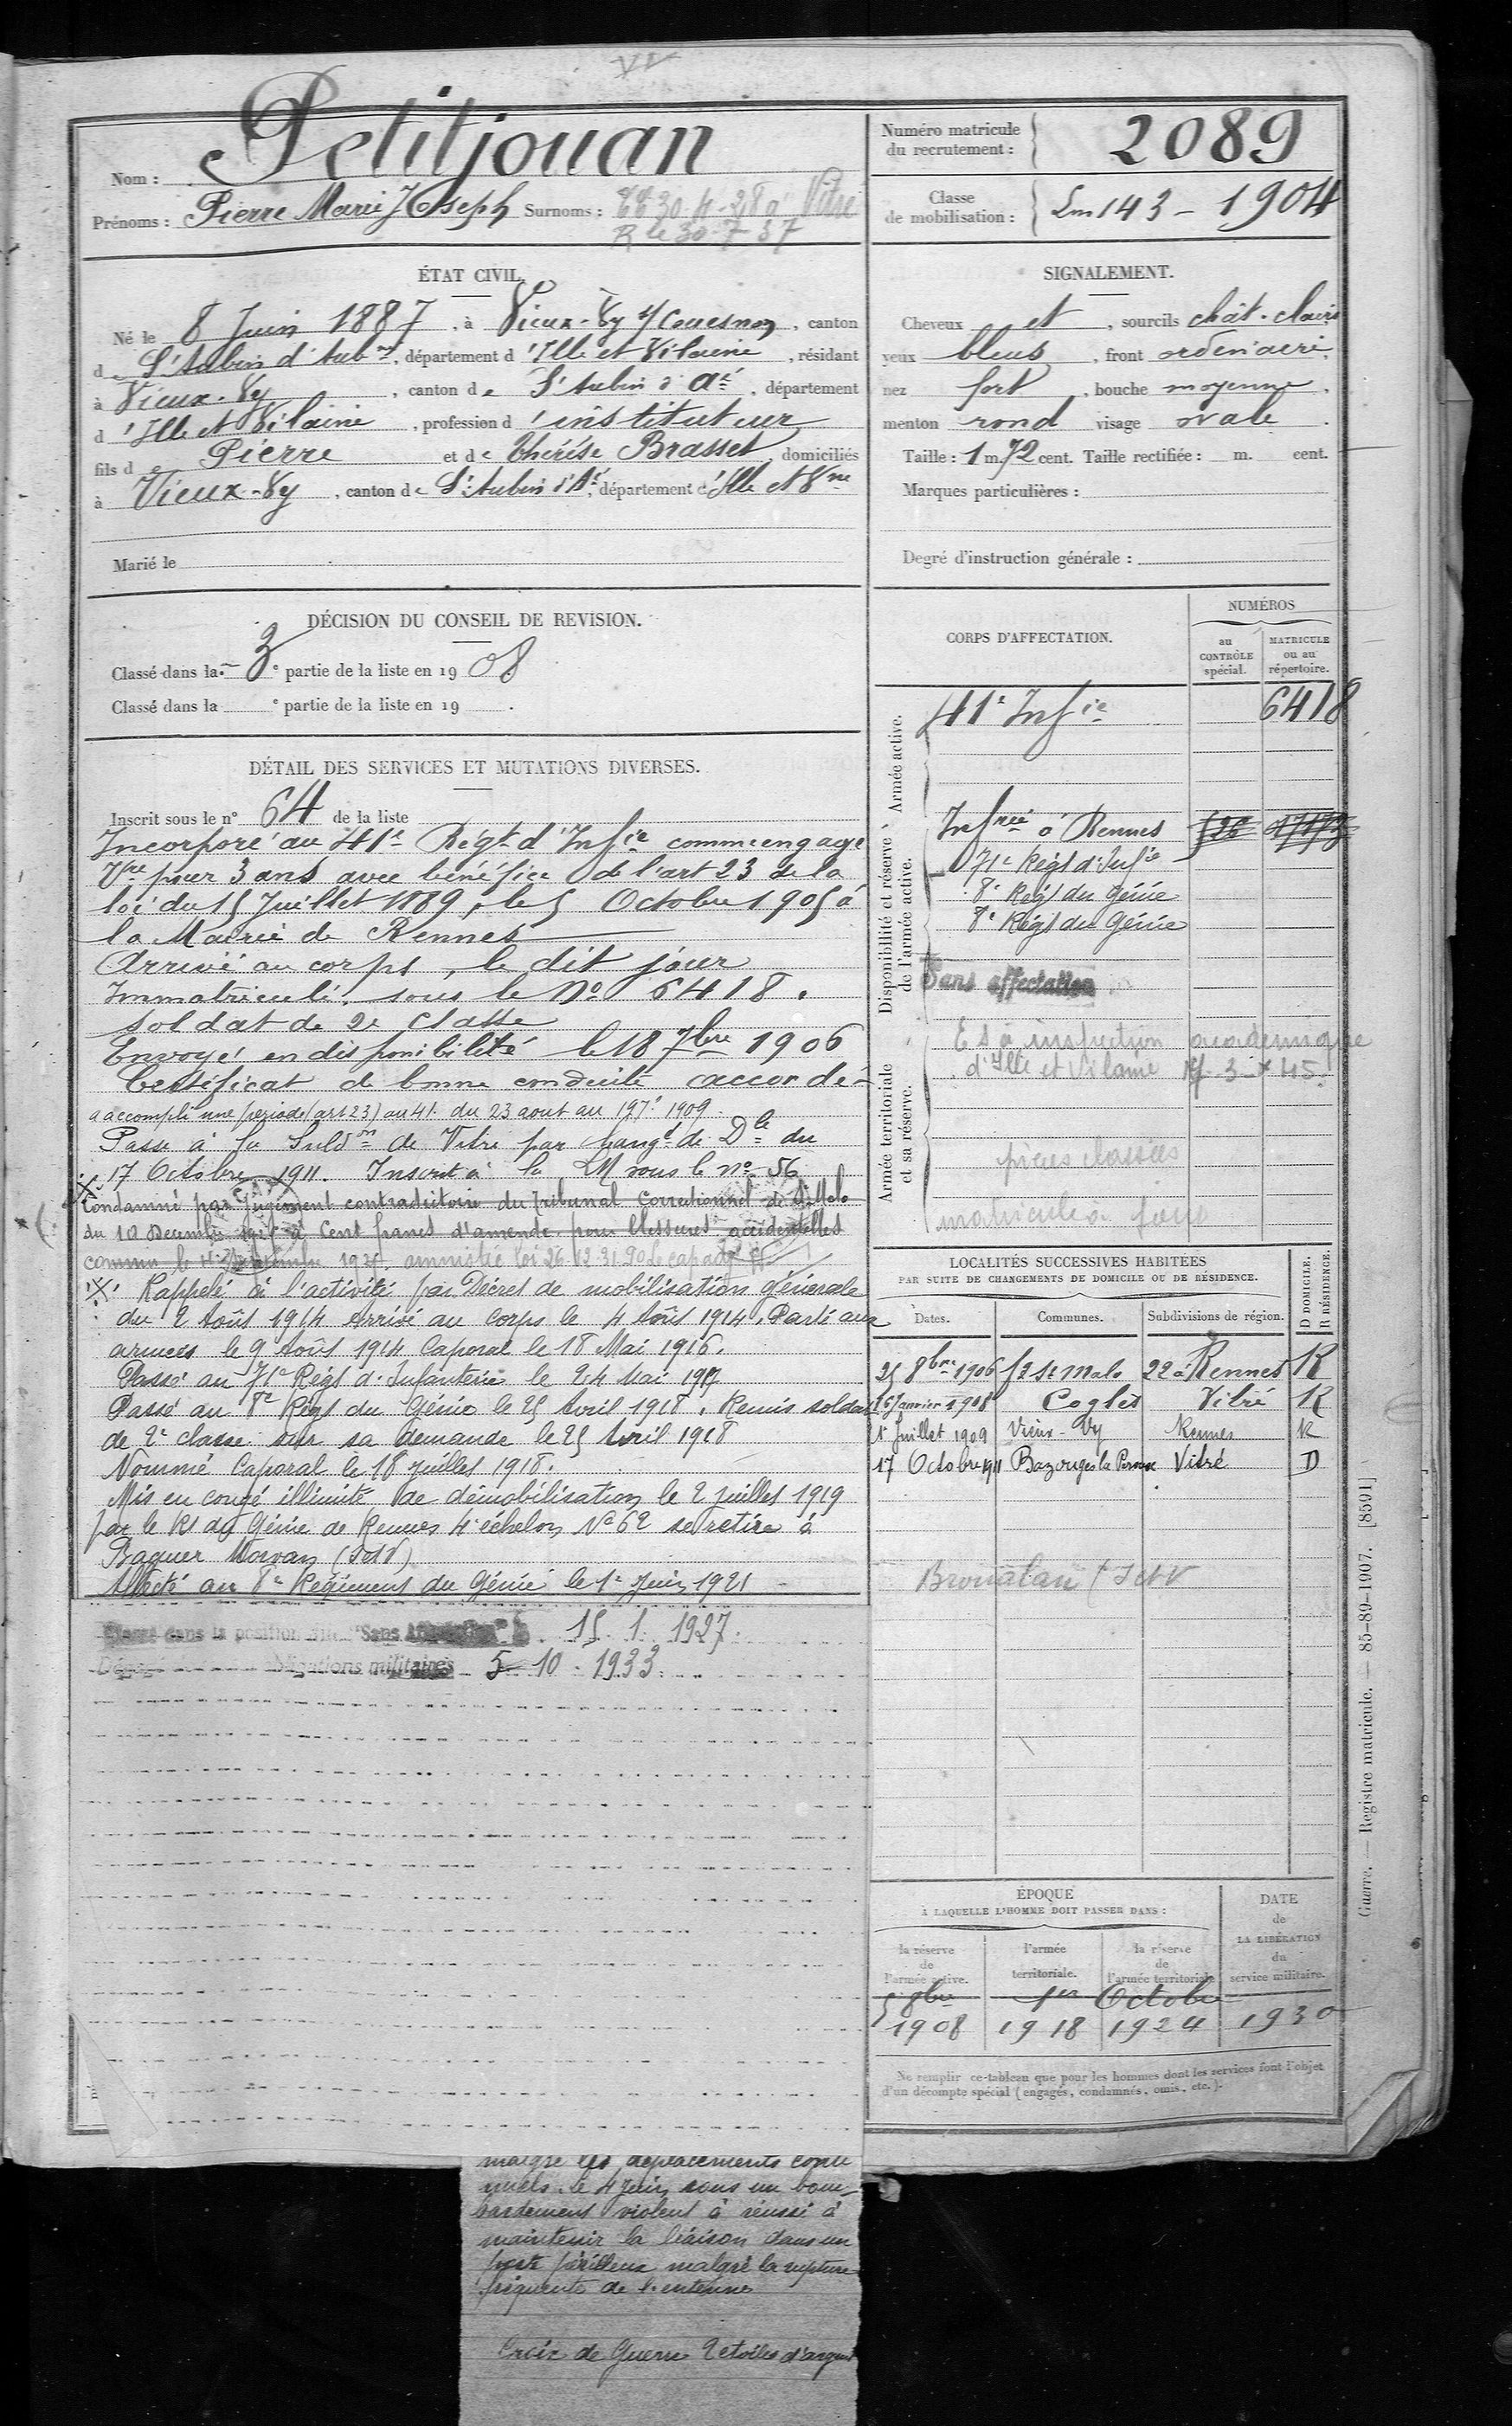 Nom : Petitjouan
Prénoms : Pierre Marie Joseph Surnoms :
R le 30-7-37
Numéro matricule
du recrutement : 2089
Classe
de mobilisation : Lm 143 - 1904
ÉTAT CIVIL.
Né le 8 Juin 1887, à Vieux-Vy s/ Couesnon, canton
de St Aubin d'Aubné, département d'Ille et Vilaine, résidant
à Vieux-Vy, canton de St Aubin d'Aé, département
d'Ille et Vilaine, profession d'instituteur
fils de Pierre et de Thérèse Brasset, domiciliés
à Vieux-Vy, canton de St Aubin d'Aé, département d'Ille et Vne
Marié le
SIGNALEMENT.
Cheveux et, sourcils chât. clairs
yeux bleus, front ordinaire,
nez fort, bouche moyenne,
menton rond visage ovale.
Taille : 1 m. 72 cent. Taille rectifiée : m. cent.
Marques particulières :
Degré d'instruction générale :
DÉCISION DU CONSEIL DE REVISION.
Classé dans la 3e partie de la liste en 1908
Classé dans la e partie de la liste en 19 .
DÉTAIL DES SERVICES ET MUTATIONS DIVERSES.
Inscrit sous le n° 64 de la liste
Incorporé au 41e Régt d'Infie comme engagé
Vre pour 3 ans avec bénéfice de l'art 23 de la
loi du 15 Juillet 1889, le 5 Octobre 1905 à
la Mairie de Rennes
Arrivé au corps, le dit jour
Immatriculé sous le No 6418.
soldat de 2e classe
Envoyé en disponibilité le 18 7bre 1906
Certificat de bonne conduite accordé
a accompli une période (art 23) au 41e du 23 aout au 197e 1909
Passé à la Subdon de Vitré par changt de Dle du
17 Octobre 1911. Inscrit à la LM sous le no 56
Condamné par jugement contradictoire du Tribunal Correctionnel de St Malo
du 10 Decembre à Cent francs d'amende pour blessures accidentelles
commis le amnistié loi 26.12.31
Rappelé à l'activité par Décret de mobilisation générale
du 2 Août 1914 arrivé au corps le 4 Août 1914. Parti aux
armées le 9 Août 1914 Caporal le 18 Mai 1916.
Passé au 71e Régt d'Infanterie le 24 Mai 1917
Passé au 8e Régt du Génie le 25 Avril 1918. Remis soldat
de 2e classe sur sa demande le 25 Avril 1918
Nommé Caporal le 18 juillet 1918.
Mis en congé illimité de démobilisation le 2 juillet 1919
par le Rt du Génie de Rennes 4e échelon No 62 se retire à
Baguer Morvan (I et V)
Affecté au 8e Régiment du Génie le 1e Juin 1921
Classé dans la position dite "Sans Affectation" 15. 1. 1927.
obligations militaires 5-10-1933.
CORPS D'AFFECTATION.
NUMÉROS
au
CONTRÔLE
spécial.
MATRICULE
ou au
répertoire.
Armée active.
41e Infie 6418
Disponibilité et réserve
de l'armée active.
Infrie à Rennes
71e Régt d'Infie
8e Régt du Génie
8e Régt du Génie
Sans affectation
Armée territoriale
et sa réserve.
Es à inspection academique
d'Ille et Vilaine
pièces classées
LOCALITÉS SUCCESSIVES HABITÉES
PAR SUITE DE CHANGEMENTS DE DOMICILE OU DE RÉSIDENCE.
Dates. Communes. Subdivisions de région. D DOMICILE. R RÉSIDENCE.
25 8bre 1906 St Malo 22 à Rennes R
16 Janvier 1908 Coglès Vitré R
1r Juillet 1909 Vieux-Vy Rennes R
17 Octobre 1911 Bazouges la Perouse Vitré D
Broualan (I et V
ÉPOQUE
À LAQUELLE L'HOMME DOIT PASSER DANS :
la réserve
de
l'armée active.
l'armée
territoriale.
la réserve
de
l'armée territoriale
DATE
de
LA LIBÉRATION
du
service militaire.
5 8bre 1er Octobre
1908 1918 1924 1930
Ne remplir ce tableau que pour les hommes dont les services font l'objet
d'un décompte spécial (engagés, condamnés, omis, etc.).
Guerre. — Registre matricule. — 85-89-1907. [8591]
malgré les déplacements conti
nuels. le 4 Juin sous un bom-
bardement violent à réussi à
maintenir la liaison dans un
poste périlleux malgré la rupture
fréquente de l'antenne
Croix de Guerre 2 étoiles d'argent